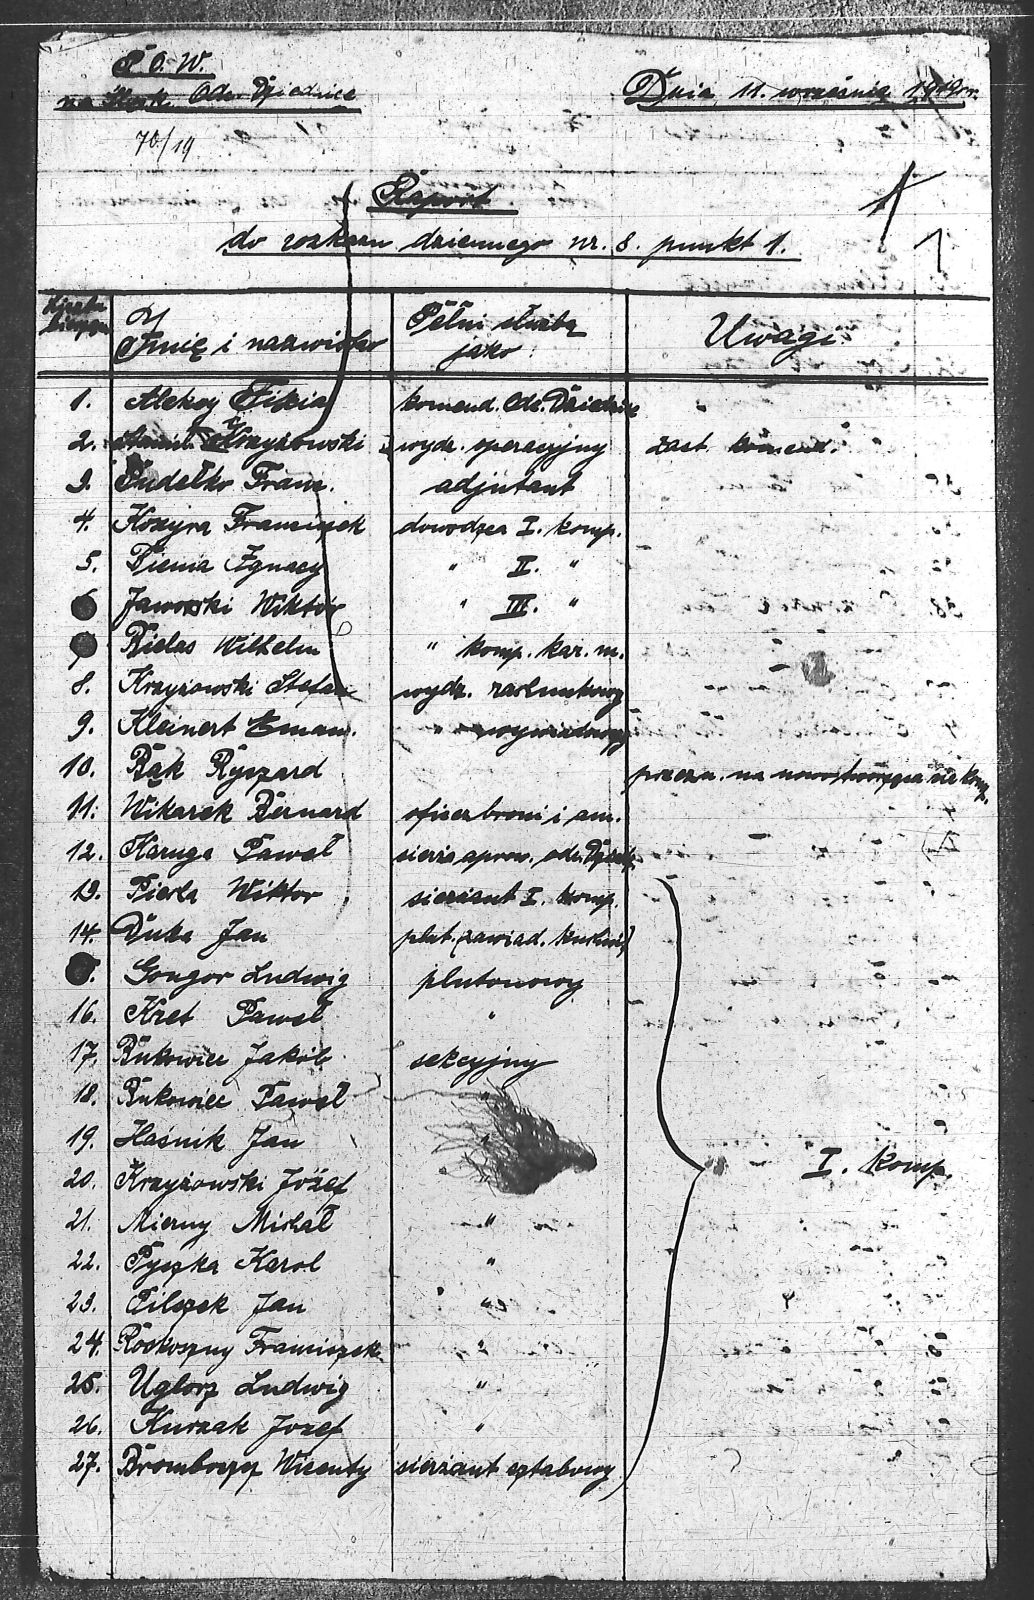 P. O. W.
na Śląsk. Odc. Dziedzice
Dnia 11. września 1919 r.
70/19
1
Raport
do rozkazu dziennego nr. 8. punkt 1.
Liczba
Imię i nazwisko
Pełni służbę
jako:
Uwagi
1. Aleksy Fizia komend. Odc. Dziedzice
2. Krzyżowski wydz. operacyjny zast. komend.
3. Pudełko Franc. adjutant
4. Kozyra Franciszek dowódca I. komp.
5. Piema Ignacy " II. "
Jaworski Wiktór " III. "
Bielas Wilhelm " komp. kar. m.
8. Krzyżowski Stefan wydz. rachunkowy
9. Kleinert Eman. " wywiadowczy
10. Bąk Ryszard
11. Wikarek Bernard oficer broni i am.
12. Karuga Paweł
13. Pierla Wiktor sierżant I. komp.
14. Duka Jan plut. (zawiad. kuchni)
Gongor Ludwig plutonowy
16. Kret Paweł "
17. Bukowiec Jakób sekcyjny
18. Bukowiec Paweł
19. Haśnik Jan
20. Krzyżowski Józef
I. komp.
21. Mierny Michał "
22. Pyszka Karol "
23. Filszek Jan "
24. Roskoszny Franciszek "
25. Uglorz Ludwig "
26. Kurzak Józef "
27. Bromboszcz Wicenty sierżant sztabowy